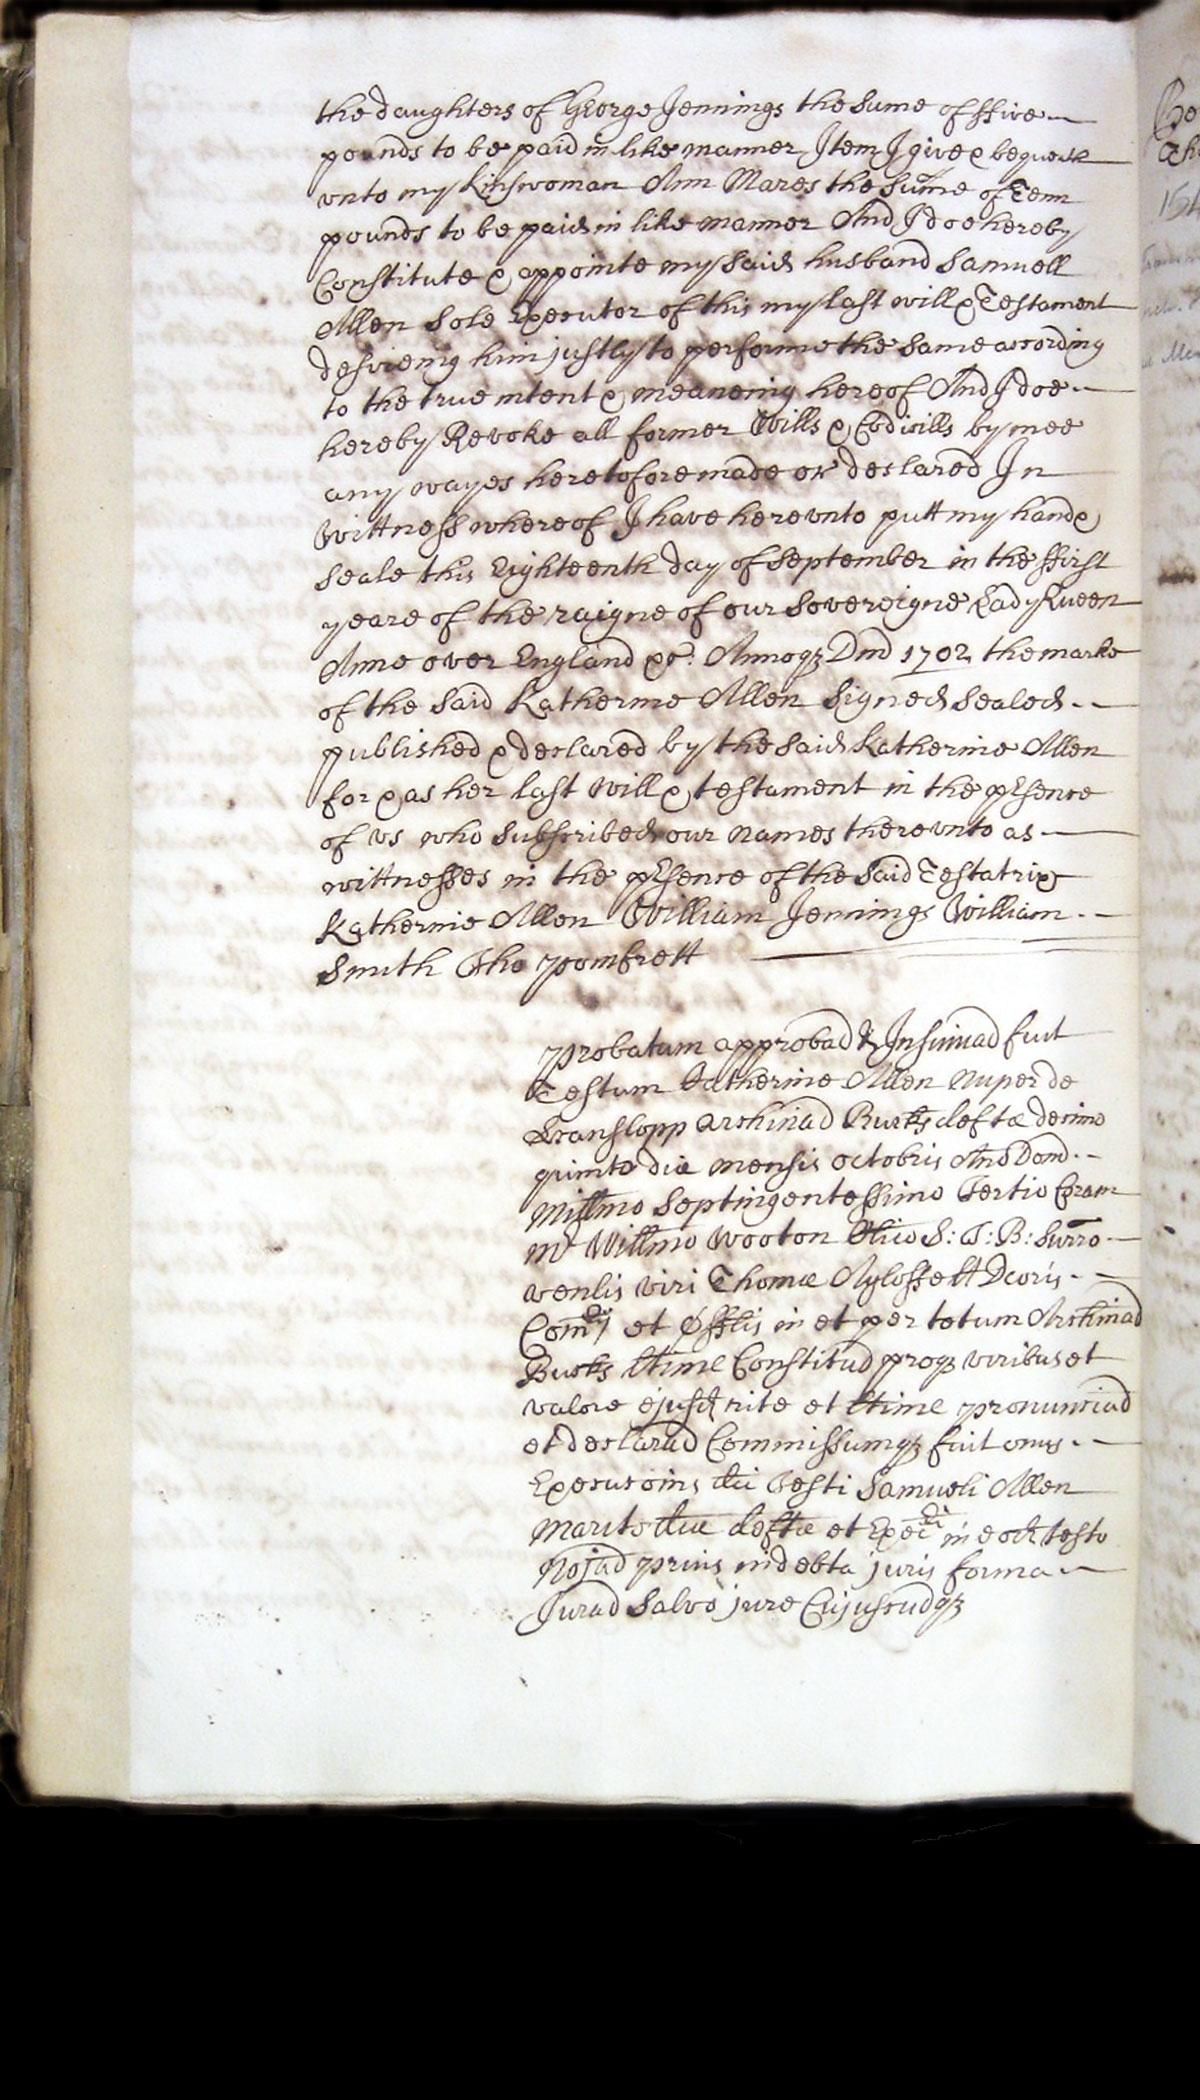 the daughters of George Jennings the Sume of ffive
pounds to be paid in like manner Item I give & bequeath
vnto my Kinswoman Ann Mares the Sume of Tenn
pounds to be paid in like manner And I doe hereby
Constitute & appointe my said husband Samuell
Allen Sole Executor of this my last will & Testament
desireing him justly to performe the same according
to the true intent & meaneing hereof And I doe
hereby Revoke all former Wills & Codicills by mee
any wayes heretofore made or declared In
Wittness whereof I have herevnto putt my hand &
Seale this Eighteenth day of September in the ffirst
yeare of the raigne of our Sovereigne Lady Queen
Anne over England &c: Annoqz Dni 1702 the marke
of the said Katherine Allen Signed Sealed
published & declared by the said Katherine Allen
for & as her last Will & testament in the pResence
of vs who Subscribed our names therevnto as
wittnesses in the pResence of the said Testatrix
Katherine Allen William Jennings William
Smith Tho Pomfrett
Probatum approbad & Insinuad fuit
Testum Katherine Allen nuper de
Hanslopp Archinad Bucks defctæ decimo
quinto die mensis Octobris Ano Dom
Millmo Septingentessimo Tertio Coram
mr Willmo Wooton Clico S: T: B: Surro
venlis viri Thomæ Aylossett Dcoris
Comrij et Offlis in et per totum Archinad
Bucks ltime Constitud proqz viribus et
valore ejusd rite et ltime pronunciad
et declarad Commissumqz fuit onus
Executoins dci Testi Samueli Allen
Marito dcæ defctæ et Exec in eod testo
Noiad prius in debta juris forma
Jurad Salvo jure Cujuscudqz